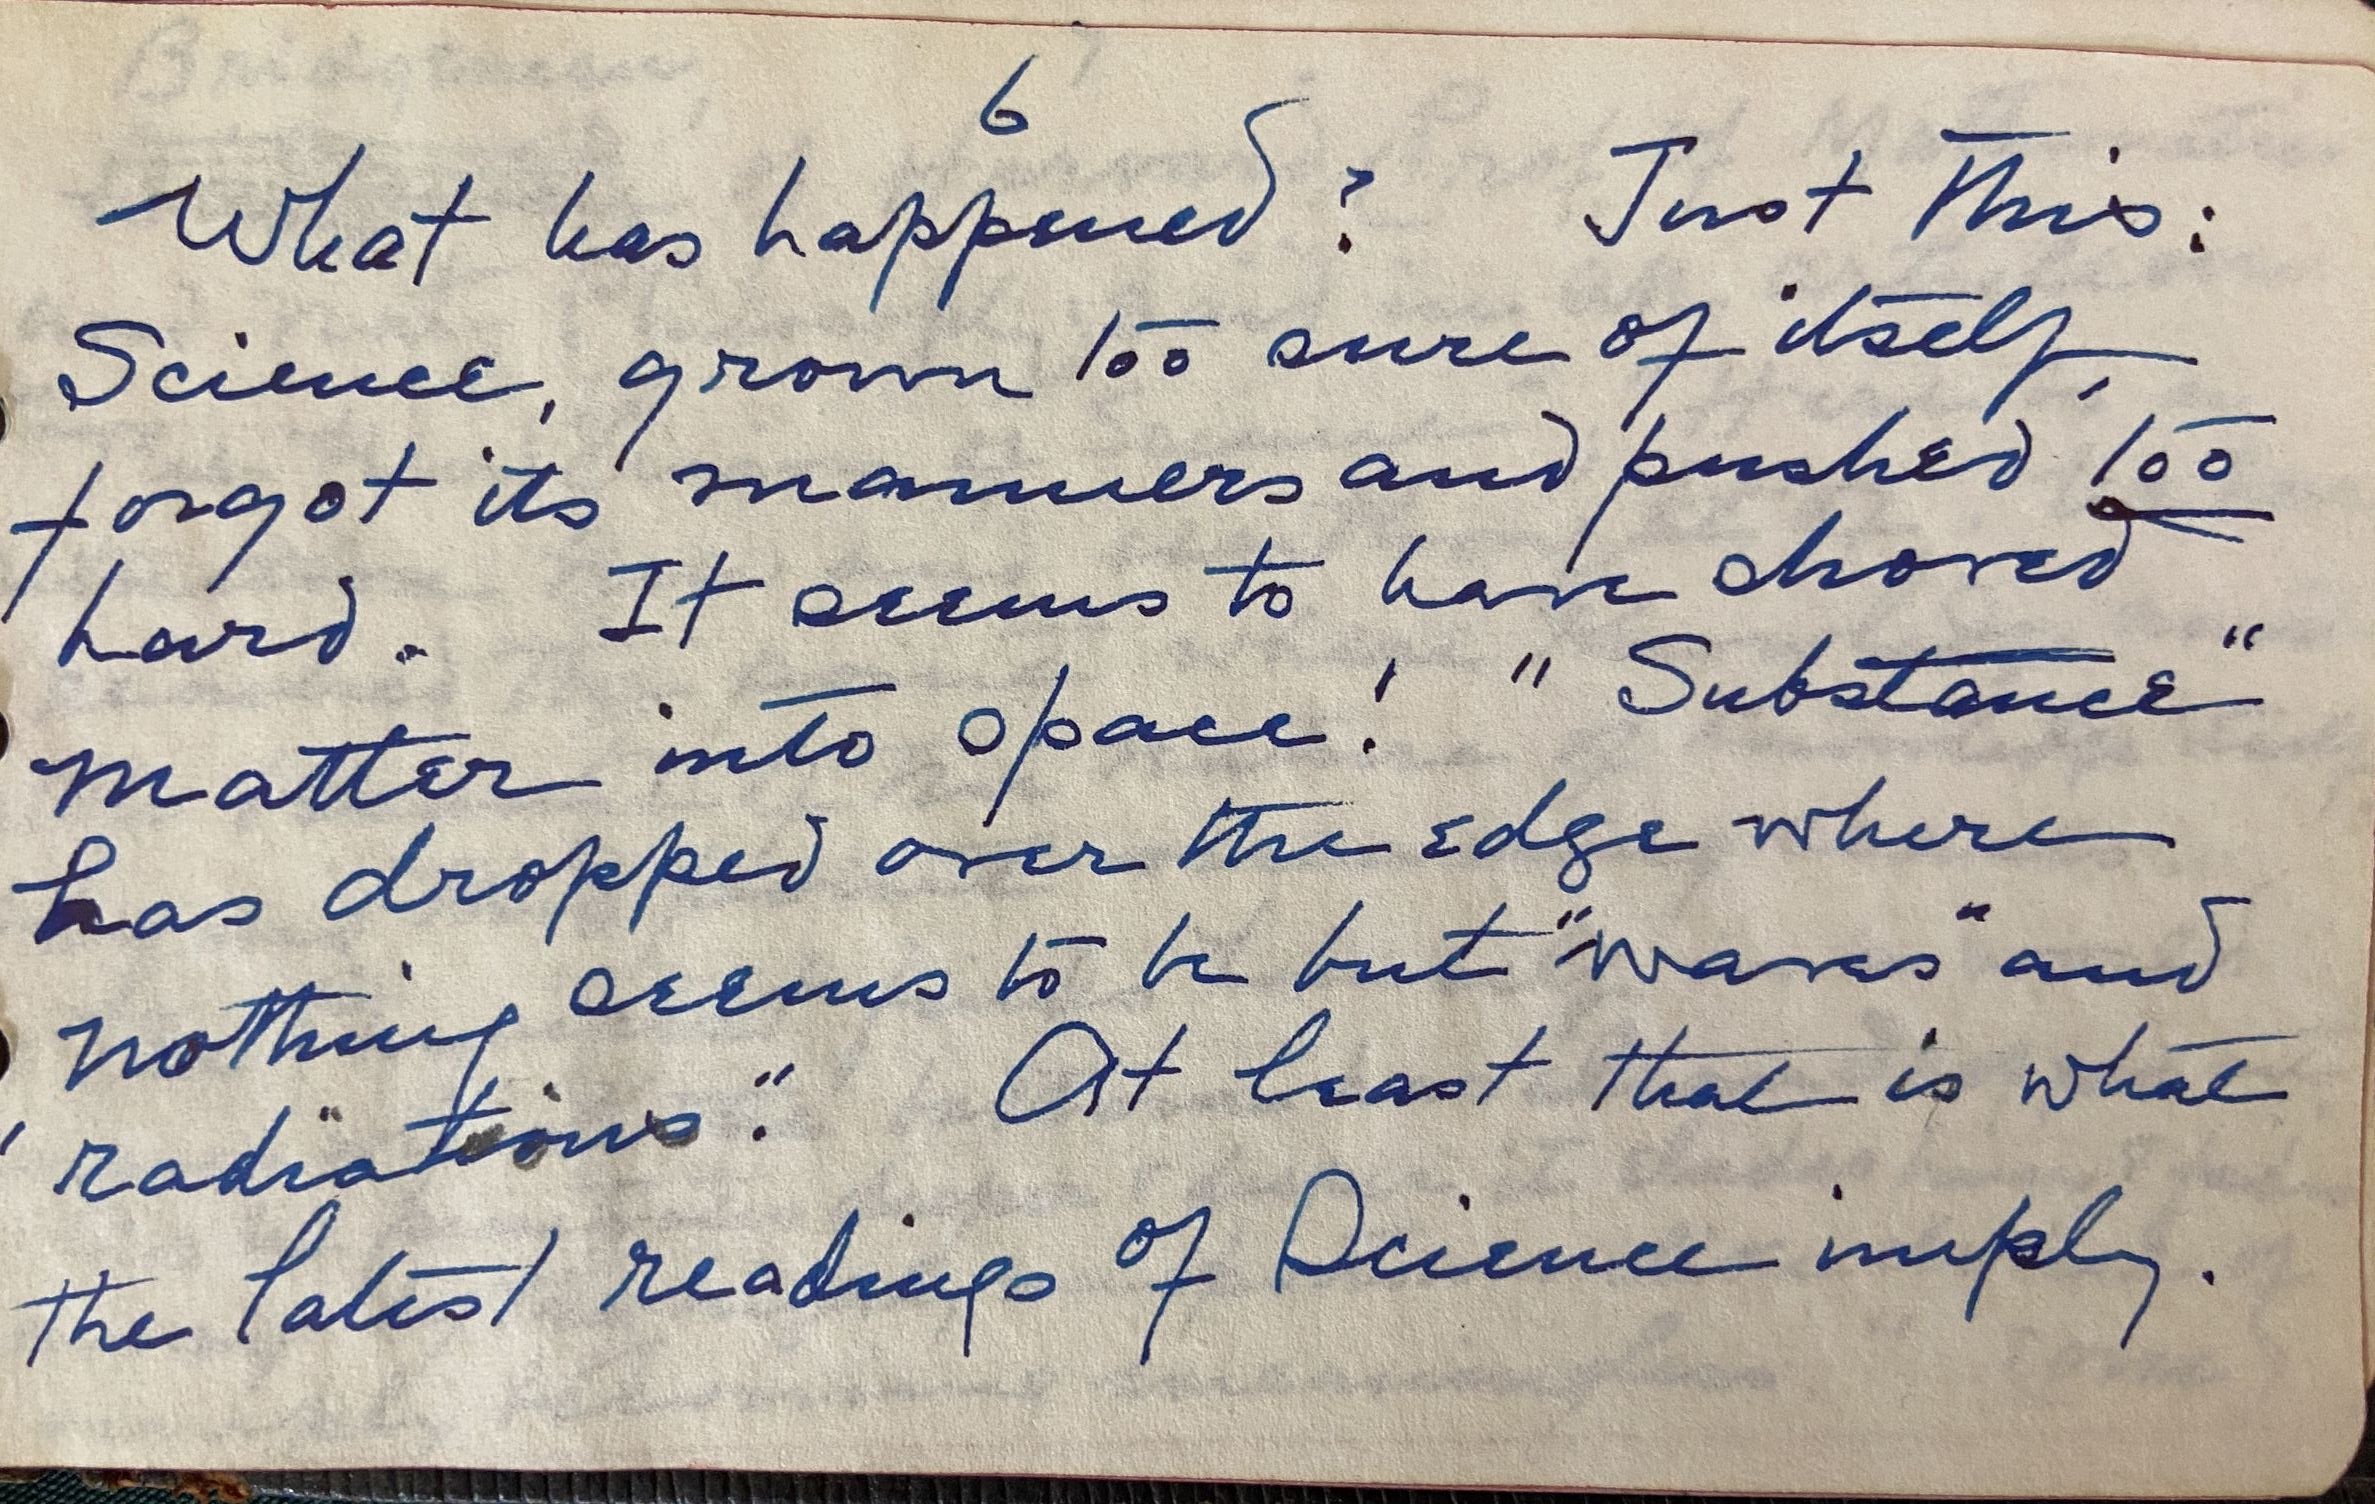 6
What has happened? Just this:
Science, grown too sure of itself,
forgot its manners and pushed too
hard. It seems to have shoved
matter into space! "Substance"
has dropped over the edge where
nothing seems to be but "waves" and
"radiations". At least that is what
the latest readings of Science imply.